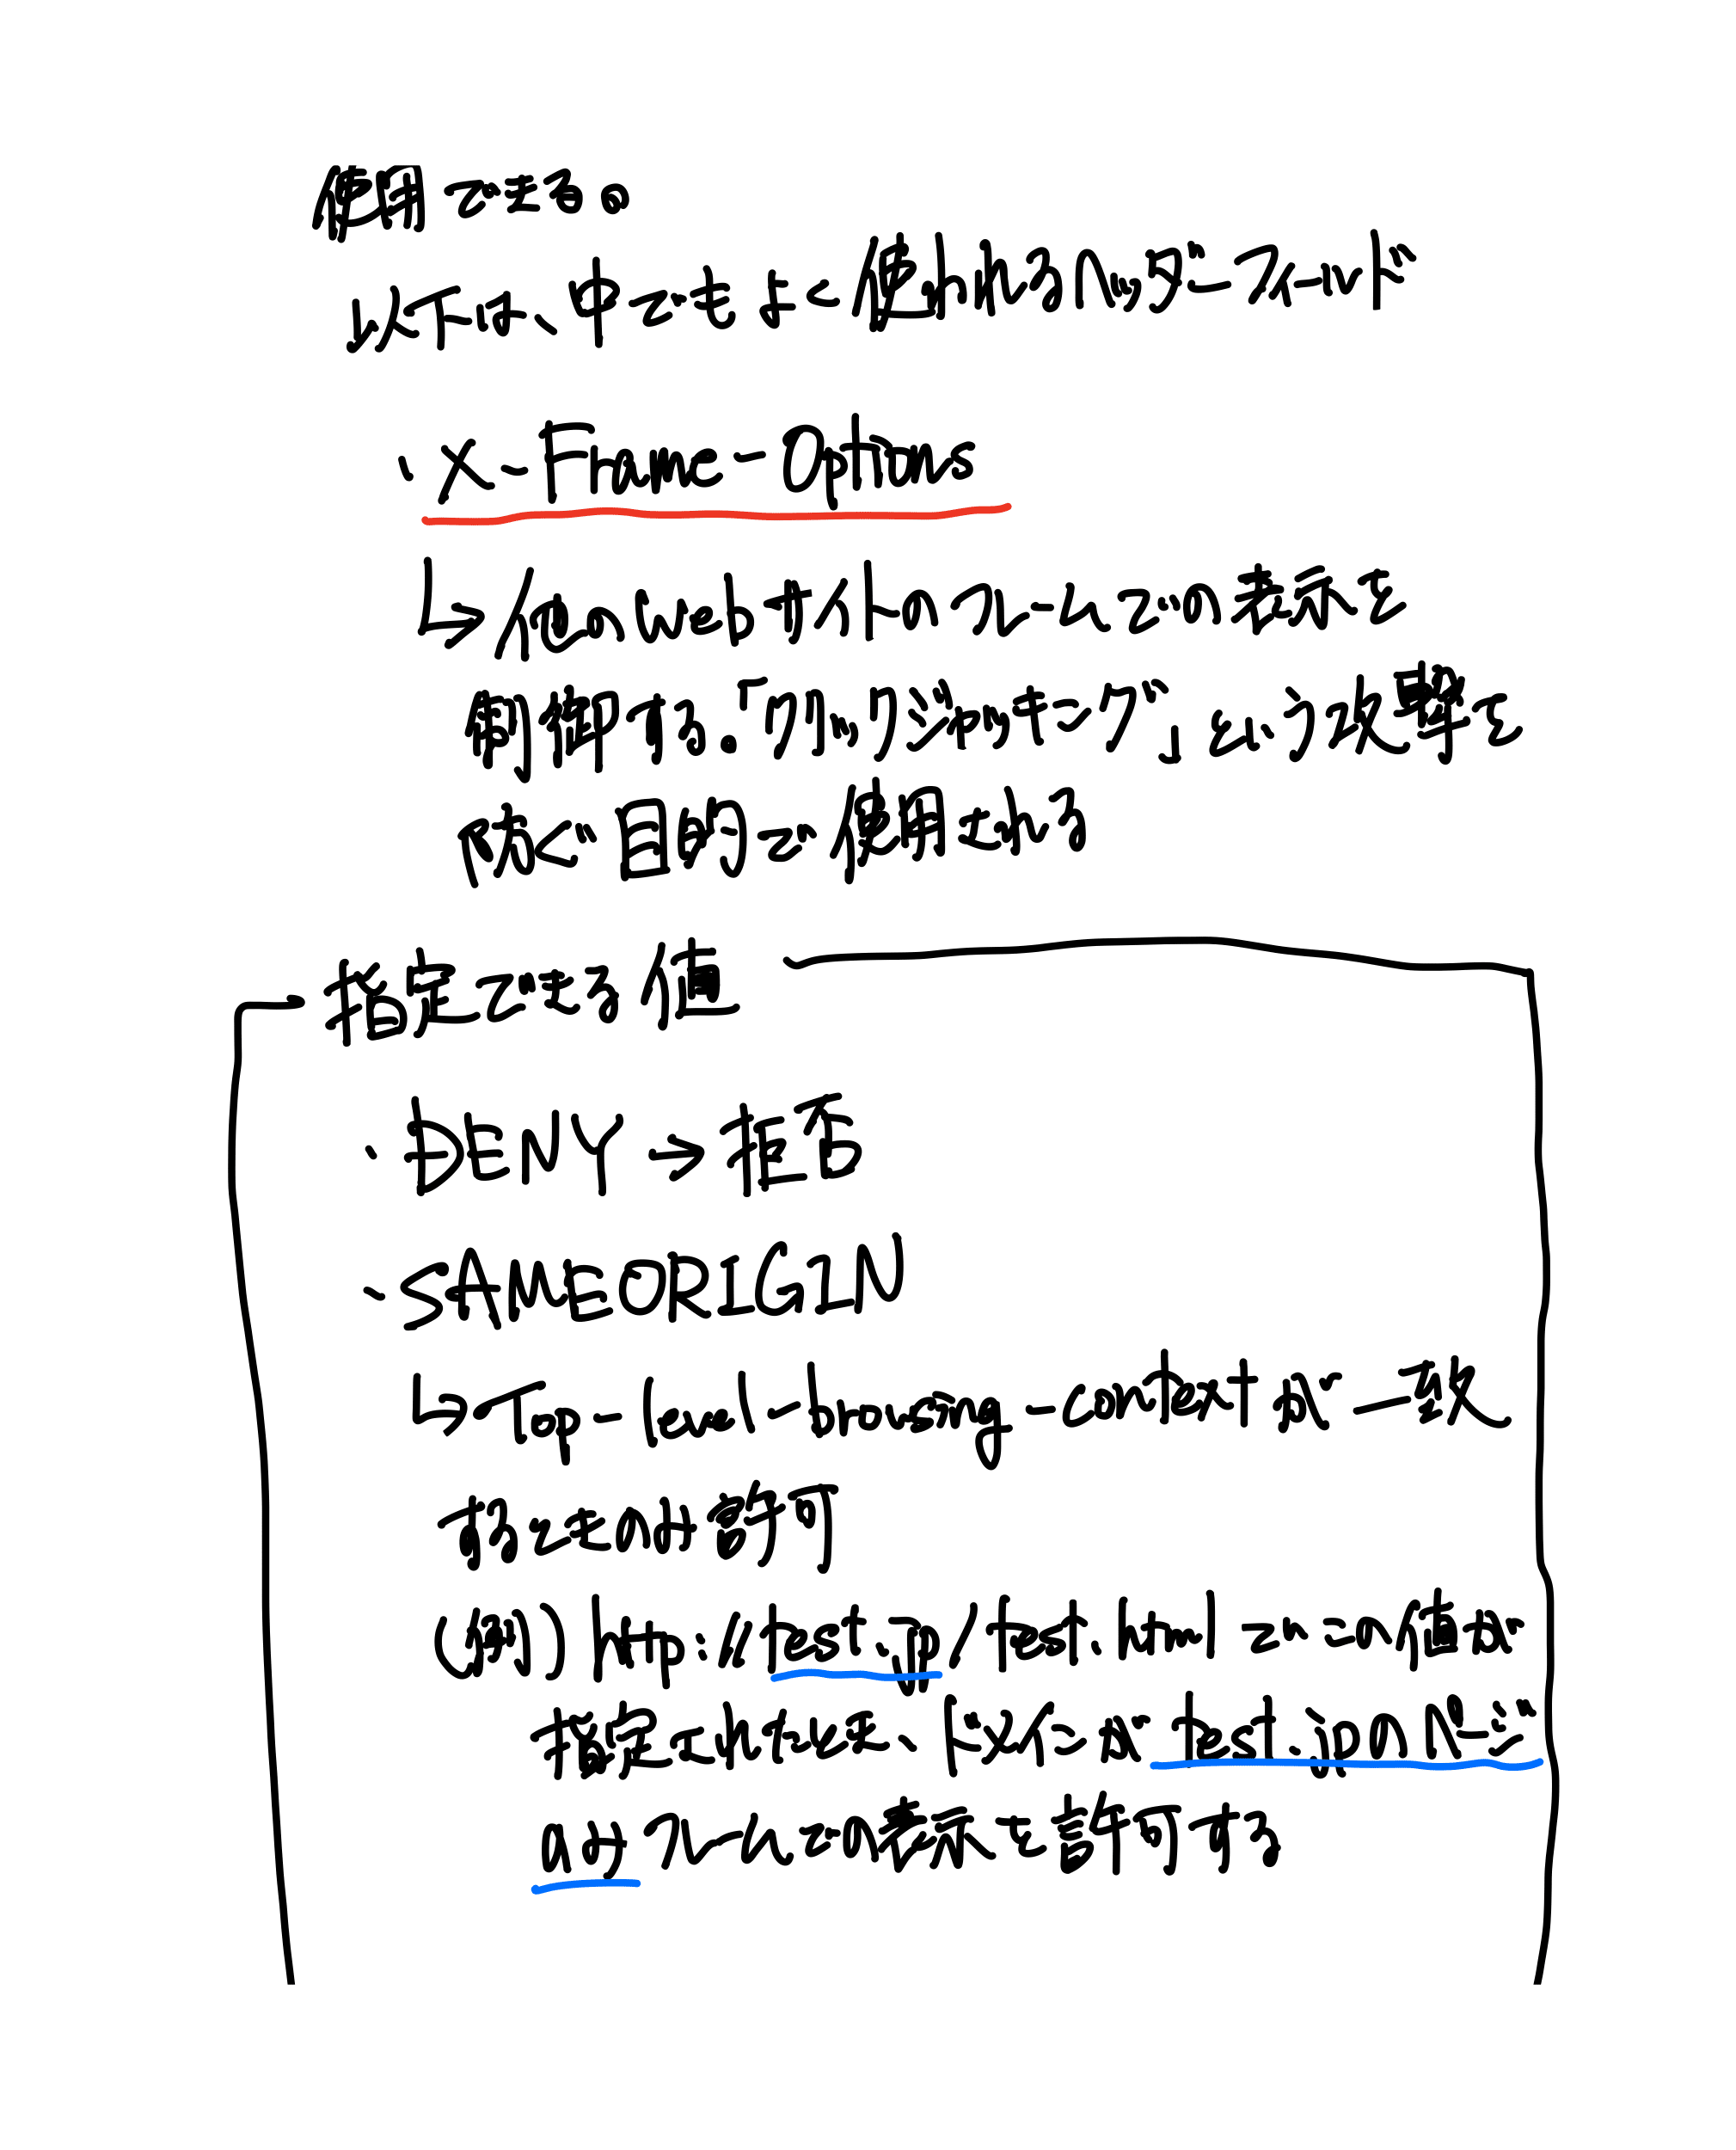 使用できる。
以下は、中でもよく使われるヘッダーフィールド
・X-Frame-Options
↳他のWebサイトのフレームでの表示を
制御する。「クリックジャッキング」という攻撃を
防ぐ目的で使用される
指定できる値
・DENY→拒否
・SAMEORIGIN
↳Top-level-browsing-contextが一致
したときのみ許可
(例) http://test.jp/test.htmlでこの値が
指定されたとき、ドメインがtest.jpのページ
のみフレームでの表示を許可する